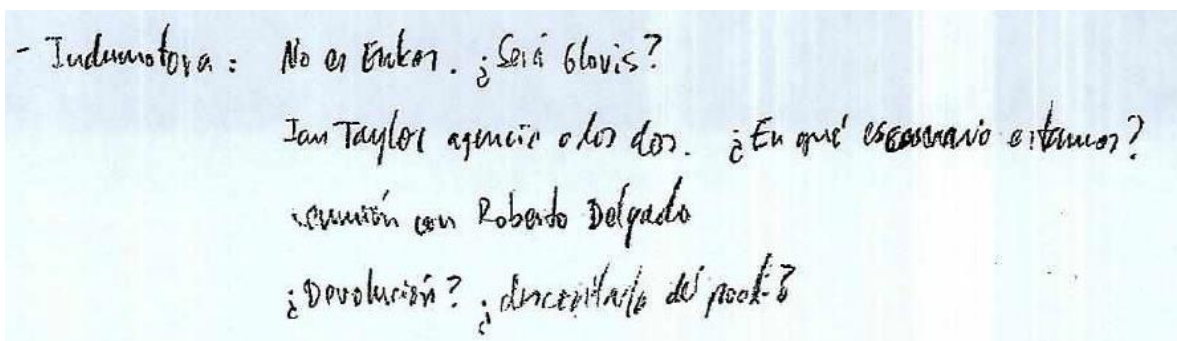 - Indumotora: No es Eukor. ¿Será Glovis?
Ian Taylor agencia a los dos. ¿En qué escenario estamos?
reunión con Roberto Delgado
¿Devolución? ¿ del pool?